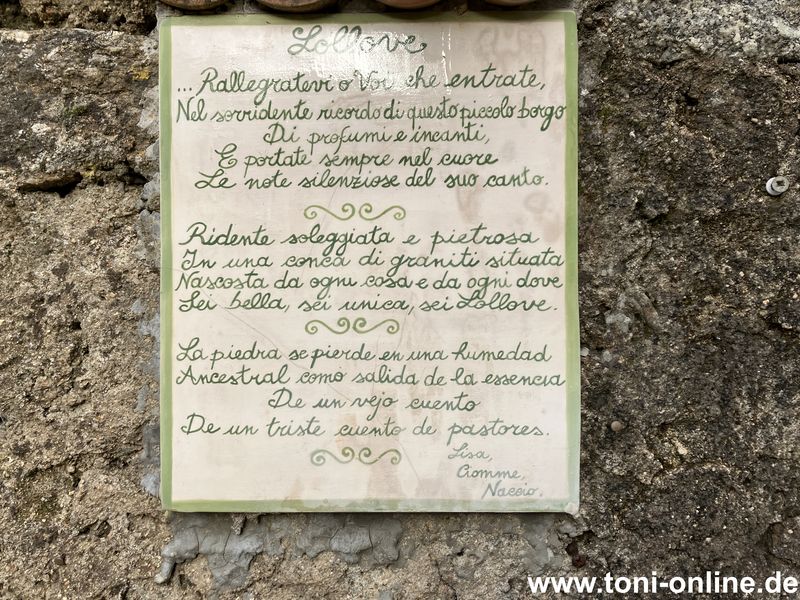 Lollove
... Rallegratevi o Voi che entrate,
Nel sorridente ricordo di questo piccolo borgo
Di profumi e incanti,
E portate sempre nel cuore
Le note silenziose del suo canto.
Ridente soleggiata e pietrosa
In una conca di graniti situata
Nascosta da ogni cosa e da ogni dove
Sei bella, sei unica, sei Lollove.
La piedra se pierde en una humedad
Ancestral como salida de la essencia
De un vejo cuento
De un triste cuento de pastores.
Lisa,
Ciomme,
Naccio.
www.toni-online.de